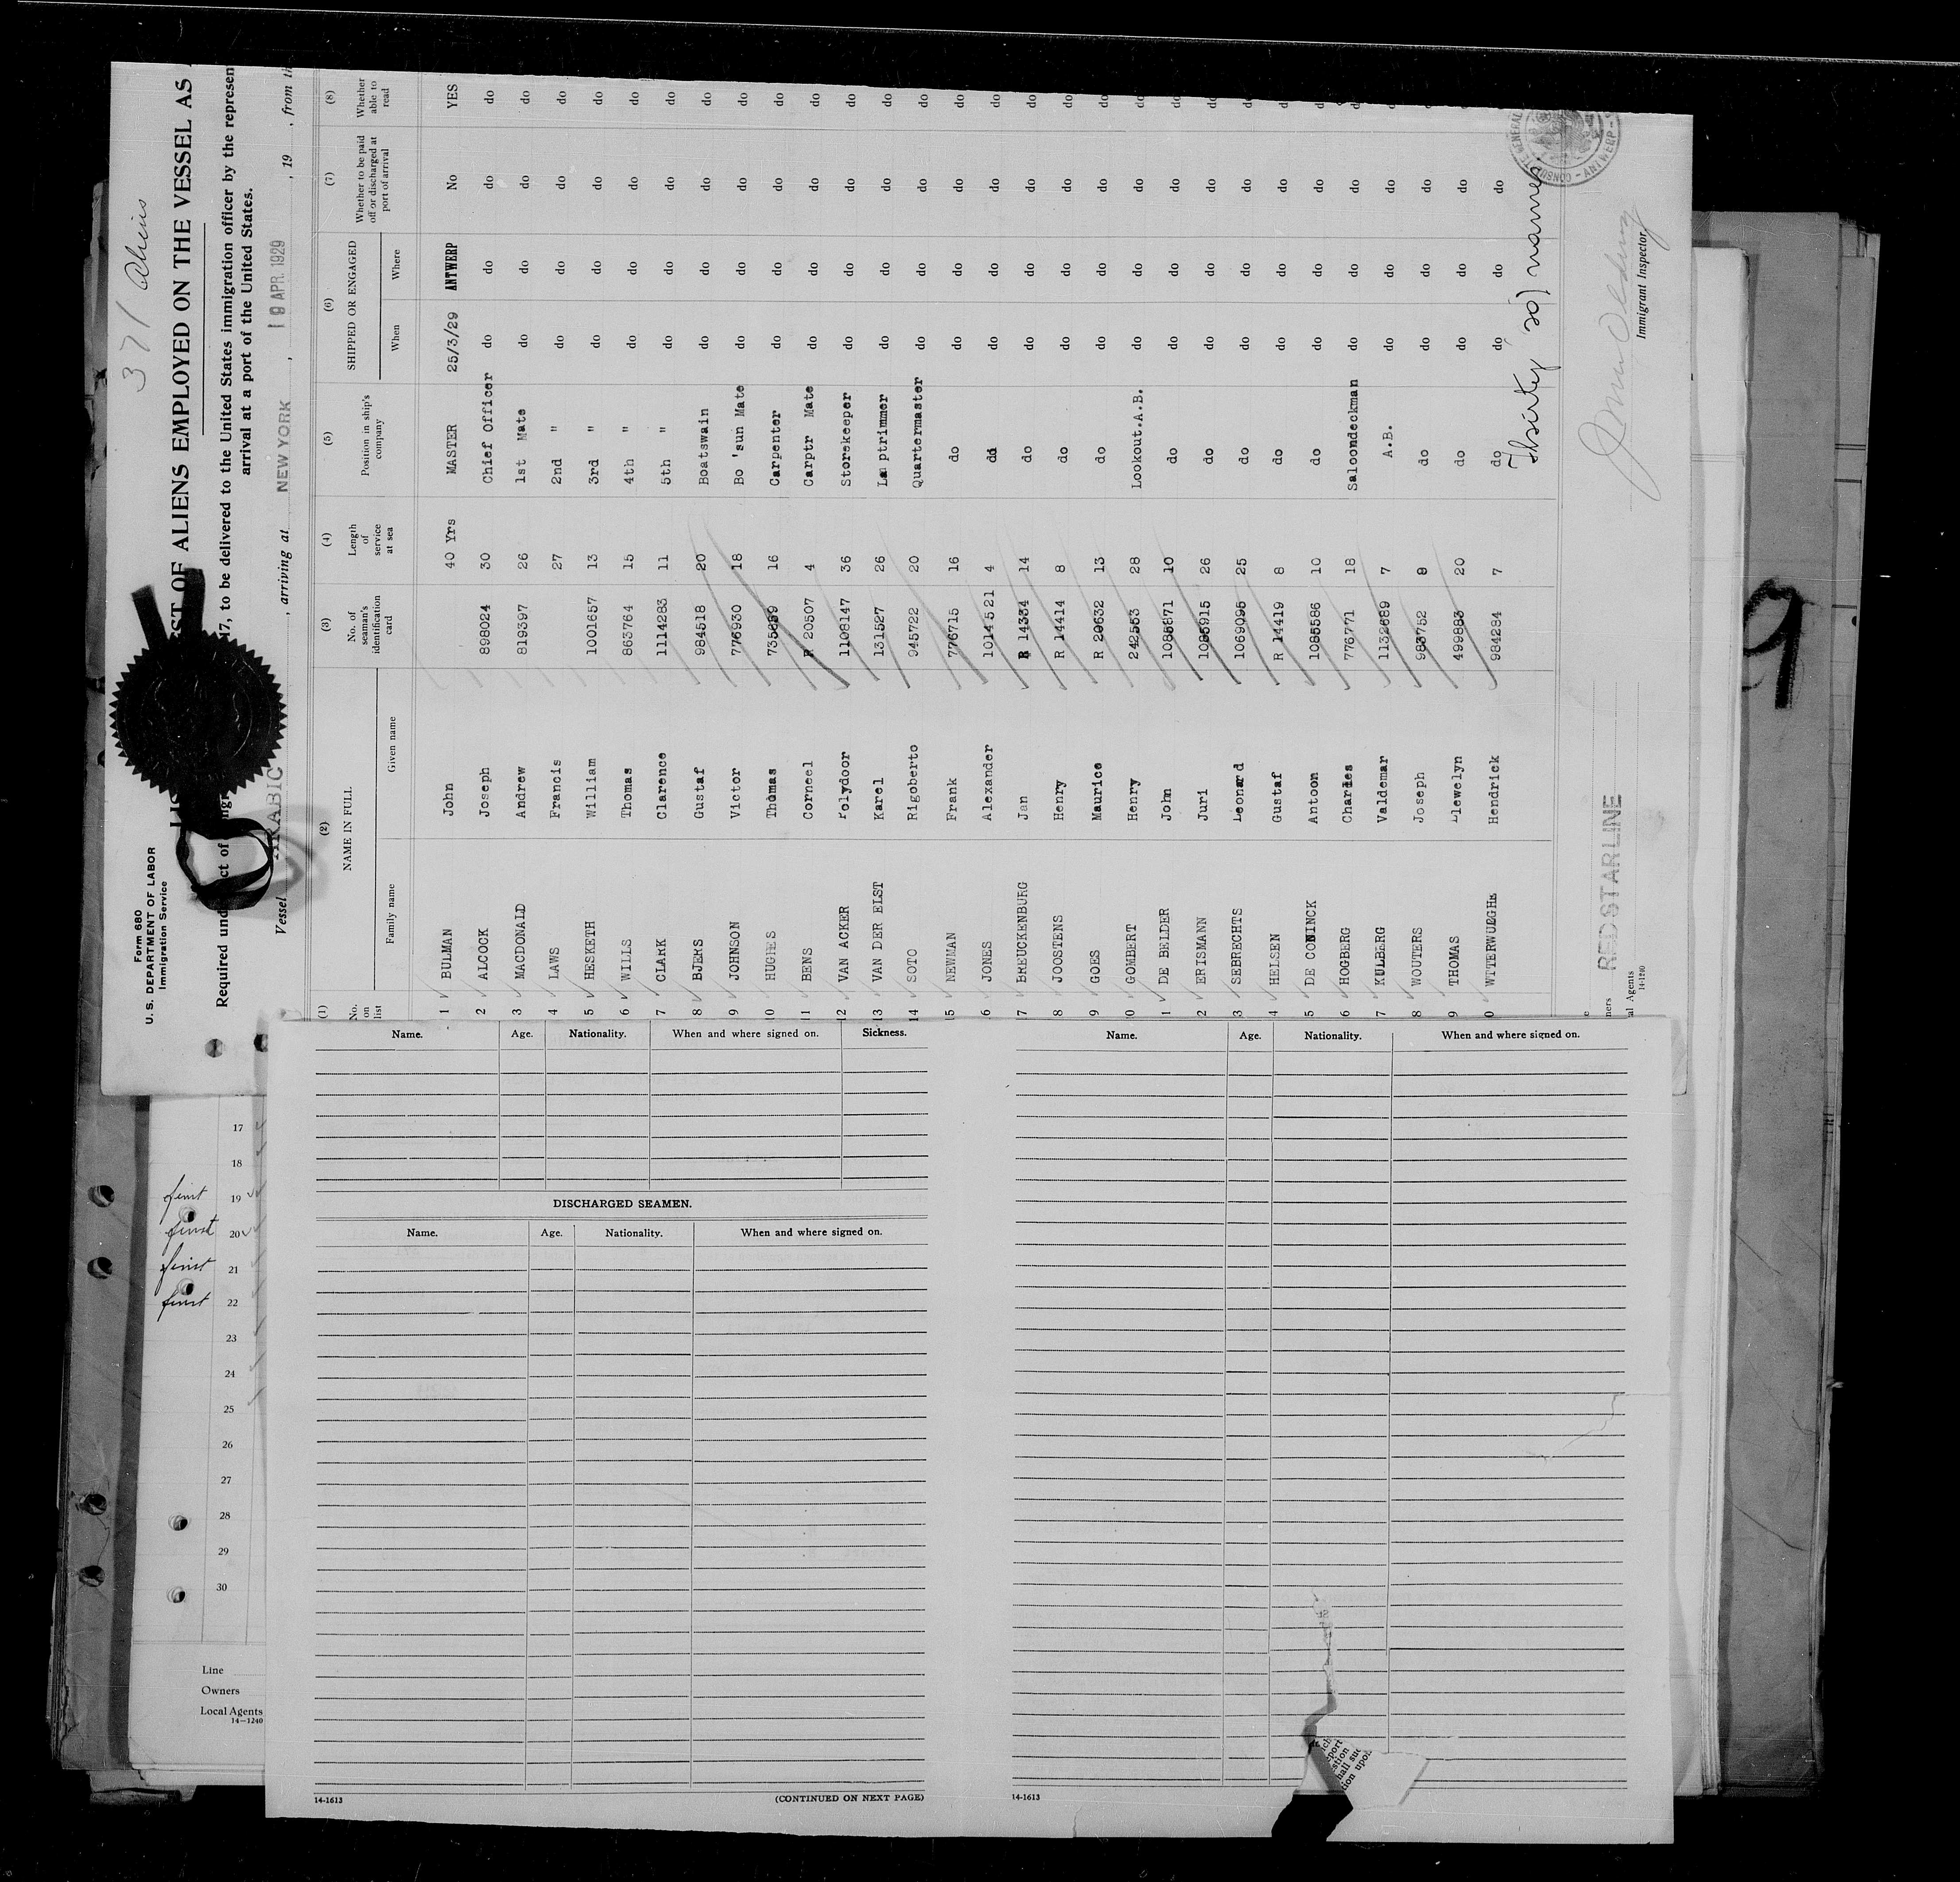 371 Aliens
Form 680
U. S. DEPARTMENT OF LABOR
Immigration Service
LIST OF ALIENS EMPLOYED ON THE VESSEL AS
Required und ct of 17, to be delivered to the United States immigration officer by the represen
arrival at a port of the United States.
Vessel ARABIC , arriving at NEW YORK , 19 APR. 1929 , 19 , from th
(1) (2) (3) (4) (5) (6) (7) (8)
No. on list NAME IN FULL No. of seaman's identification card Length of service at sea Position in ship's company SHIPPED OR ENGAGED Whether to be paid off or discharged at port of arrival Whether able to read
Family name Given name When Where
1 BULMAN John 40 Yrs MASTER 25/3/29 ANTWERP No YES
2 ALCOCK Joseph 898024 30 Chief Officer do do do do
3 MACDONALD Andrew 819397 26 1st Mate do do do do
4 LAWS Francis 27 2nd " do do do do
5 HESKETH William 1001657 13 3rd " do do do do
6 WILLS Thomas 863764 15 4th " do do do do
7 CLARK Clarence 1114283 11 5th " do do do do
8 BJERS Gustaf 984518 20 Boatswain do do do do
9 JOHNSON Victor 776930 18 Bo 'sun Mate do do do do
10 HUGHES Thomas 16 Carpenter do do do do
11 BENS Corneel R 20507 4 Carptr Mate do do do do
12 VAN ACKER Polydoor 1108147 36 Storekeeper do do do do
13 VAN DER ELST Karel 131527 26 Lamptrimmer do do do do
14 SOTO Rigoberto 945722 20 Quartermaster do do do do
5 NEWMAN Frank 776715 16 do do do do do
6 JONES Alexander 1014521 4 do do do do do
7 BREUCKENBURG Jan R 14334 14 do do do do do
8 JOOSTENS Henry R 14414 8 do do do do do
9 GOES Maurice R 20632 13 do do do do do
0 GOMBERT Henry 242553 28 Lookout.A.B. do do do do
1 DE BELDER John 1085871 10 do do do do do
2 ERISMANN Juri 1085915 26 do do do do do
3 SEBRECHTS Leonard 1069095 25 do do do do do
4 HELSEN Gustaf R 14419 8 do do do do do
5 DE CONINCK Antoon 1085586 10 do do do do d
6 HOGBERG Charles 776771 18 Saloondeckman do do do d
7 KULBERG Valdemar 1132689 7 A.B. do do do
8 WOUTERS Joseph 983752 8 do do do do
9 THOMAS Llewelyn 499883 20 do do do do
0 WITTERWULGHE Hendrick 984284 7 do do do do
Thirty (30) names.
CONSULATE GENERAL - ANTWERP -
RED STAR LINE
Immigrant Inspector.
ners
al Agents
14-1240
Name. Age. Nationality. When and where signed on. Sickness.
DISCHARGED SEAMEN.
Name. Age. Nationality. When and where signed on.
14-1613 (CONTINUED ON NEXT PAGE)
Name. Age. Nationality. When and where signed on.
14-1613
ich
port
stion
hall suc
tion upo
17
18
first 19
first 20
first 21
first 22
23
24
25
26
27
28
29
30
Line
Owners
Local Agents
14—1240
9